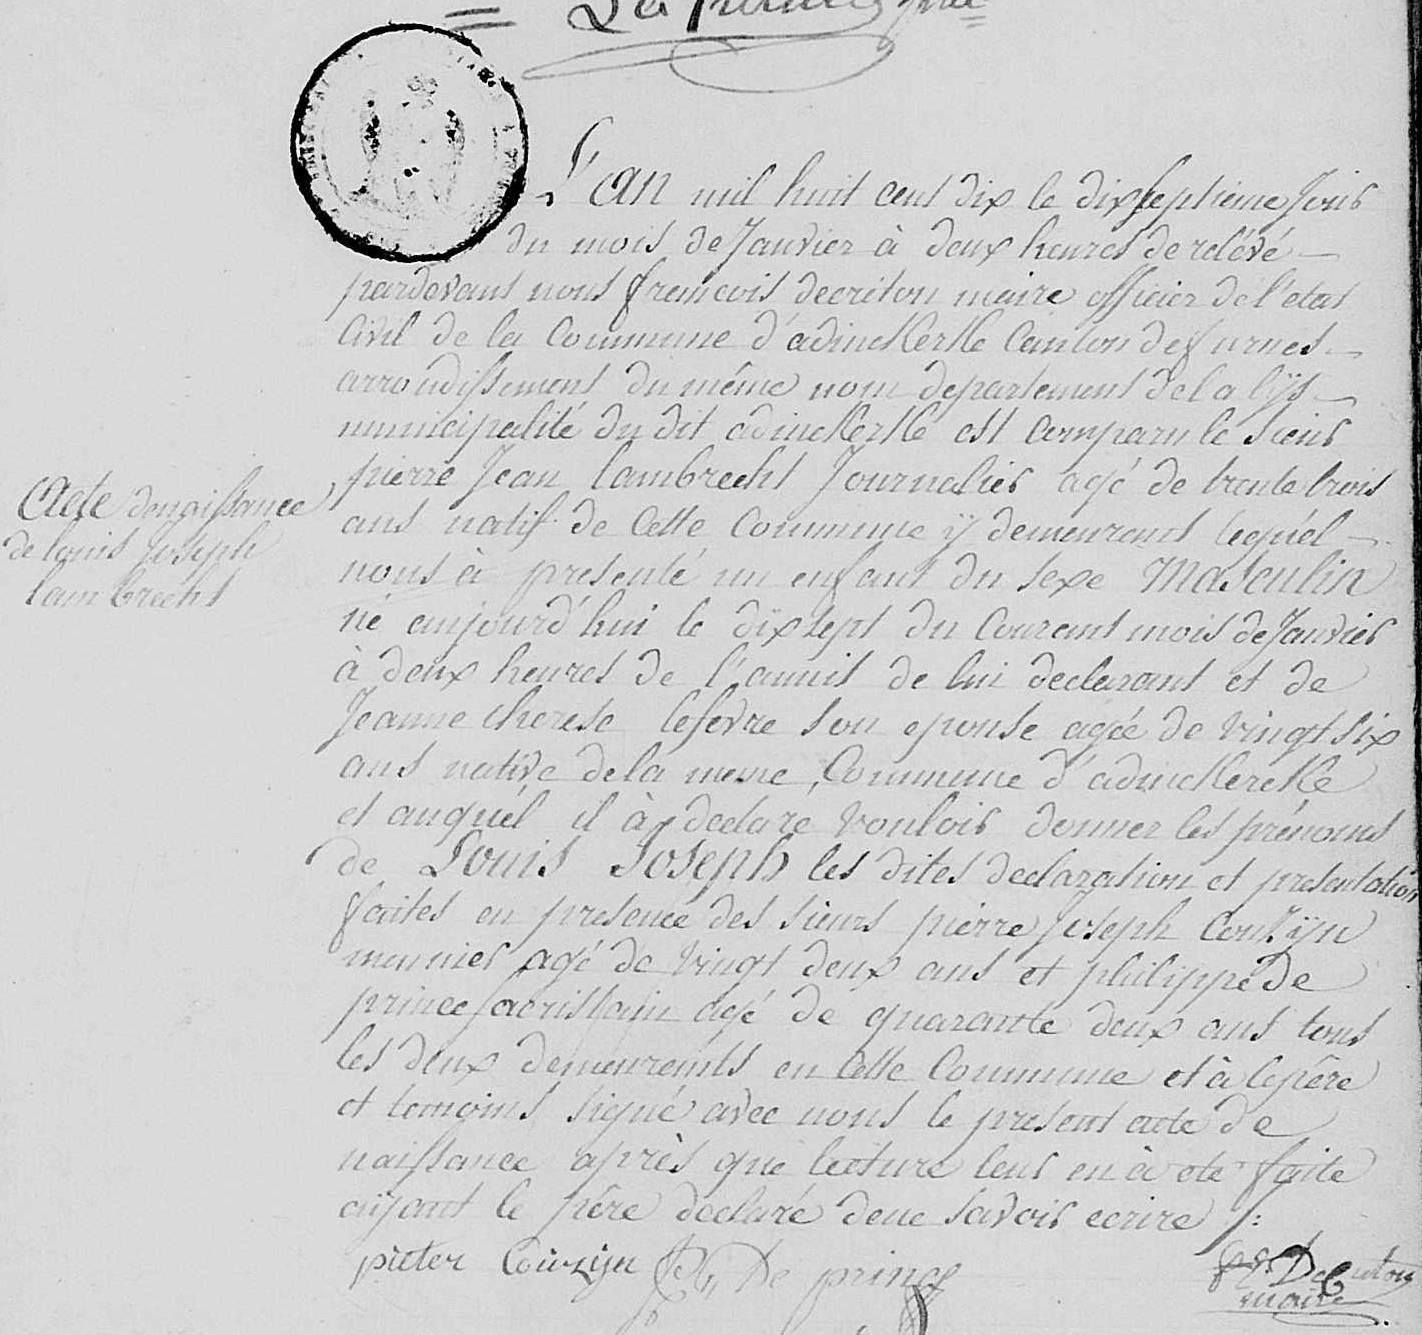 L'an mil huit cent dix le dixseptieme Jour
du mois de Janvier à deux heures de rélévé —
pardevant nous francois decreton maire officier de l'etat
Civil de la Commune d'adinckerke Canton de furnes —
arrondissement du même nom departement de la lÿs —
municipalité du dit adinckerke est comparu le sieur
pierre Jean Lambrecht Journalier agé de trente trois
Acte de naissance
de louis Joseph
lambrecht
ans natif de Cette Commune ÿ demeurant lequél —
nous à presenté un enfant du sexe Masculin
né aujourd'hui le dixsept du Courant mois de Janvier
à deux heures de l'anuit de lui declarant et de
Jeanne therese lefevre son epouse agée de vingt six
ans native de la meme Commune d'adinckercke
et auquél il à declare vouloir donner les prénoms
de Louis Joseph les dites declaration et presentation
faites en presence des sieurs pierre Joseph Couzÿn
meunier agé de vingt deux ans et philippe De
prince sacristain agé de quarante deux ans tous
les deux demeurants en Cette Commune et à le père
et temoins signé avec nous le present acte de
naissance après que lecture leur en à ete faite
aÿant le père declaré de ne savoir ecrire /:
pieter Couzijn Ph De prince
fs. Decreton
maire